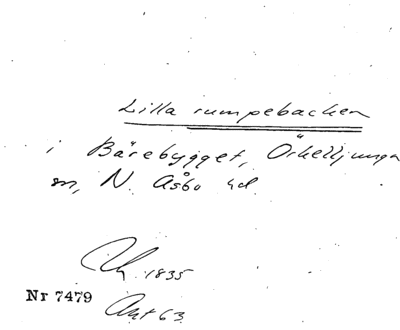 Lilla rumpebacken
i Bårebygget, Örkelljunga
sn, N. Åsbo hd.
1835
Nr 7479
Akt 63